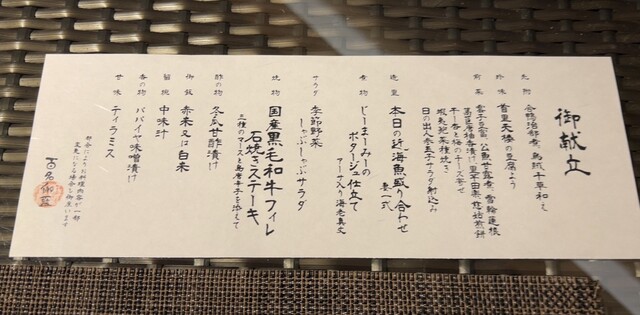 御献立
先附
合鴨治部煮 鳥賊千草和え
珍味
首里天楼の豆腐よう
前菜
雲子旨煮 公魚甘露煮 雪輪蓮根
干し杏と梅のチーズ寄せ
城見鮑菜種焼き
日の出人参玉子サラダ射込み
造里
本日の近海魚盛り合わせ
妻一式
煮物
じーまーみーの
ポタージュ仕立て
アーサ入り海老真丈
サラダ
季節野菜
しゃぶしゃぶサラダ
焼物
国産黒毛和牛フィレ
石焼きステーキ
三種のソースと島唐辛子を添えて
酢の物
冬瓜甘酢漬け
御飯
赤米又は白米
留椀
中味汁
香の物
パパイヤ味噌漬け
甘味
ティラミス
都合により料理内容が一部
変更になる場合も御座います